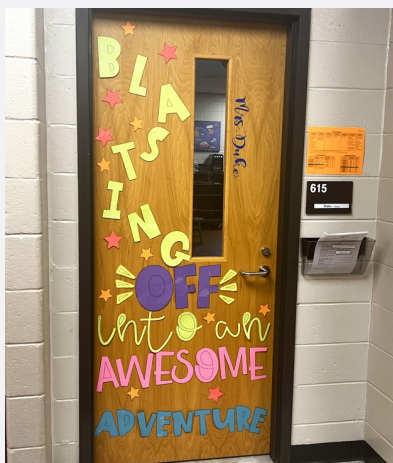 BLASTING
OFF
into an
AWESOME
ADVENTURE
Mrs. Duke
615